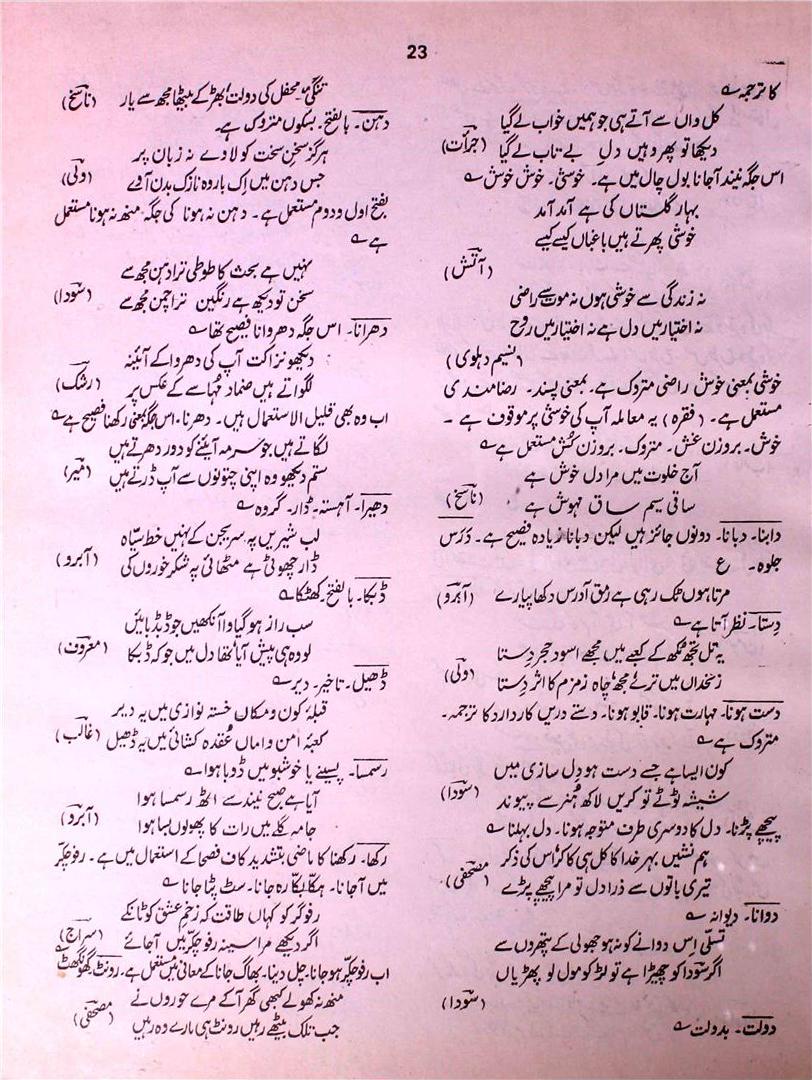 23
کا ترجمہ ؎
کل واں سے آتے ہی جو ہمیں خواب لے گیا
دیکھا تو پھر وہیں دلِ بے تاب لے گیا (جرأت)
اس جگہ نیند آجانا بول چال میں ہے۔ خوشی۔ خوش خوش ؎
بہار گلستاں کی ہے آمد آمد
خوشی پھرتے ہیں باغباں کیسے کیسے
(آتش)
نہ زندگی سے خوشی ہوں نہ موت سے راضی
نہ اختیار میں دل ہے نہ اختیار میں روح
(نسیم دہلوی)
خوشی بمعنی خوش راضی متروک ہے۔ بمعنی پسند۔ رضامندی
مستعمل ہے۔ (فقرہ) یہ معاملہ آپ کی خوشی پر موقوف ہے۔
خوش۔ بروزن غش۔ متروک۔ بروزن کُش مستعمل ہے ؎
آج خلوت میں مرا دل خوش ہے
ساقی سیم ساق نہوش ہے (ناسخ)
دابنا۔ دبانا۔ دونوں جائز ہیں لیکن دبانا زیادہ فصیح ہے۔ دَرَس
جلوہ۔ ع
مرتا ہوں ٹک رہی ہے رمق آدرس دکھا پیارے (آبرو)
دِستا۔ نظر آتا ہے ؎
یہ تل تجھ مکھ کے کعبے میں مجھے اسود حجر دِستا
زنخداں میں ترے مجھ چاہ زمزم کا اثر دِستا (ولی)
دست ہونا۔ مہارت ہونا۔ قابو ہونا۔ دستے دریں کار دارد کا ترجمہ۔
متروک ہے ؎
کون ایسا ہے جسے دست ہو دل سازی میں
شیشہ ٹوٹے تو کریں لاکھ ہُنر سے پیوند (سودا)
پیچھے پڑنا۔ دل کا دوسری طرف متوجہ ہونا۔ دل بہلنا ؎
ہم نشیں بہر خدا کل ہی کا کر اُس کی ذکر
تیری باتوں سے ذرا دل تو مرا پیچھے پڑے (مصحفی)
دوانا۔ دیوانہ ؎
تسلی اِس دوانے کو نہ ہو جھولی کے پتھروں سے
اگر سودا کو چھیڑا ہے تو لڑکو مول لو پھڑیاں
(سودا)
دولت۔ بدولت ؎
تنگیٔ محفل کی دولت اُبھڑ کے بیٹھا مجھ سے یار (ناسخ)
دہن۔ بالفتح۔ بسکوں متروک ہے۔
ہرگز سخن سخت کو لاوے نہ زبان پر
جس دہن میں اِک بار وہ نازک بدن آوے (ولی)
بفتح اول و دوم مستعمل ہے۔ دہن نہ ہونا کی جگہ منھ نہ ہونا مستعمل
ہے ؎
نہیں ہے بحث کا طوطی ترا دہن مجھ سے
سخن تو دیکھ ہے رنگین ترا چمن مجھ سے (سودا)
دھرانا۔ اس جگہ دھروانا فصیح تھا ؎
دیکھو نزاکت آپ کی دھروا کے آئینہ
لگواتے ہیں ضماد مُہاسے کے عکس پر (رشک)
اب وہ بھی قلیل الاستعمال ہیں۔ دھرنا۔ اس جگہ بمعنی رکھنا فصیح ہے ؎
لگاتے ہیں جو سرمہ آئینے کو دور دھرتے ہیں
ستم دیکھو وہ اپنی چتونوں سے آپ ڈرتے ہیں (میر)
دھیرا۔ آہستہ۔ ڈار۔ گروہ ؎
لب شیریں پہ سریجن کے نہیں خط سیاہ
ڈار چھوٹی ہے مٹھائی پہ شکر خوروں کی (آبرو)
ڈبکا۔ بالفتح۔ کھٹکا ؎
سب راز ہو گیا وا آنکھیں جو ڈبڈبائیں
لو وہ ہی پیش آیا تھا دل میں جو کہ ڈبکا (معروف)
ڈھیل۔ تاخیر۔ دیر ؎
قبلۂ کون و مکاں خستہ نوازی میں یہ دیر
کعبۂ امن و اماں عُقدہ کشائی میں یہ ڈھیل (غالب)
رسمسا۔ پسینے یا خوشبو میں ڈوبا ہوا ؎
آیا ہے صبح نیند سے اُٹھ رسمسا ہوا
جامہ گلے میں رات کا پھولوں بسا ہوا (آبرو)
رکھا۔ رکھنا کا ماضی بتشدید کاف فصحا کے استعمال میں ہے۔ رفو چکر
میں آجانا۔ ہکا بکا رہ جانا۔ سٹ پٹا جانا ؎
رفوگر کو کہاں طاقت کہ زخمِ عشق کو ٹانکے
اگر دیکھے مرا سینہ رفو چکر میں آجائے (سراج)
اب رفو چکر ہو جانا۔ چل دینا۔ بھاگ جانا کے معانی میں مستعمل ہے۔ رونٹ۔ گھونگھٹ ؎
منھ نہ کھولے کبھی گھر آ کے مرے حوروں نے
جب تلک بیٹھے رہیں رونٹ ہی مارے وہ رہیں (مصحفی)